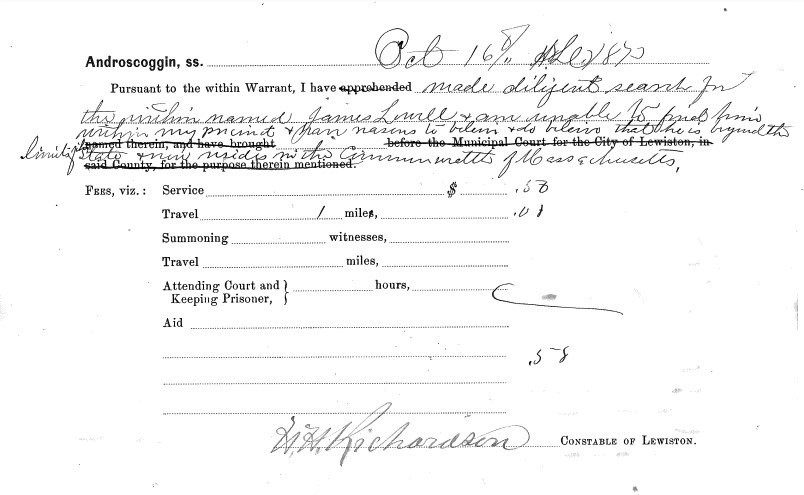 Androscoggin, ss. Oct 16th A.D. 1873
Pursuant to the within Warrant, I have apprehended made diligent search for
the within named James Lowell & am unable to find him
within my precinct & have reasons to believe & do believe that he is beyond the
named therein, and have brought before the Municipal Court for the City of Lewiston, in
limits of State & now resides in the Commonwealth of Massachusetts,
said County, for the purpose therein mentioned.
FEES, viz.: Service $ .50
Travel 1 miles, .0
Summoning witnesses,
Travel miles,
Attending Court and hours,
Keeping Prisoner,
Aid
.58
W.H. Richardson CONSTABLE OF LEWISTON.